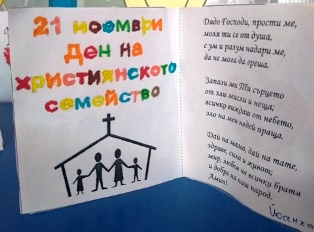 21 ноември
Ден на
християнското
семейство
Дядо Господи, прости ме,
моля ти се от душа,
с ум и разум надари ме,
да не мога да греша.
Запази ми Ти сърцето
от зли мисли и неща;
всичко виждаш от небето,
зло на мен недей праща.
Дай на мама, дай на тате,
здраве, сила и живот;
мир, любов на всички братя
и добро на наш народ.
Амин!